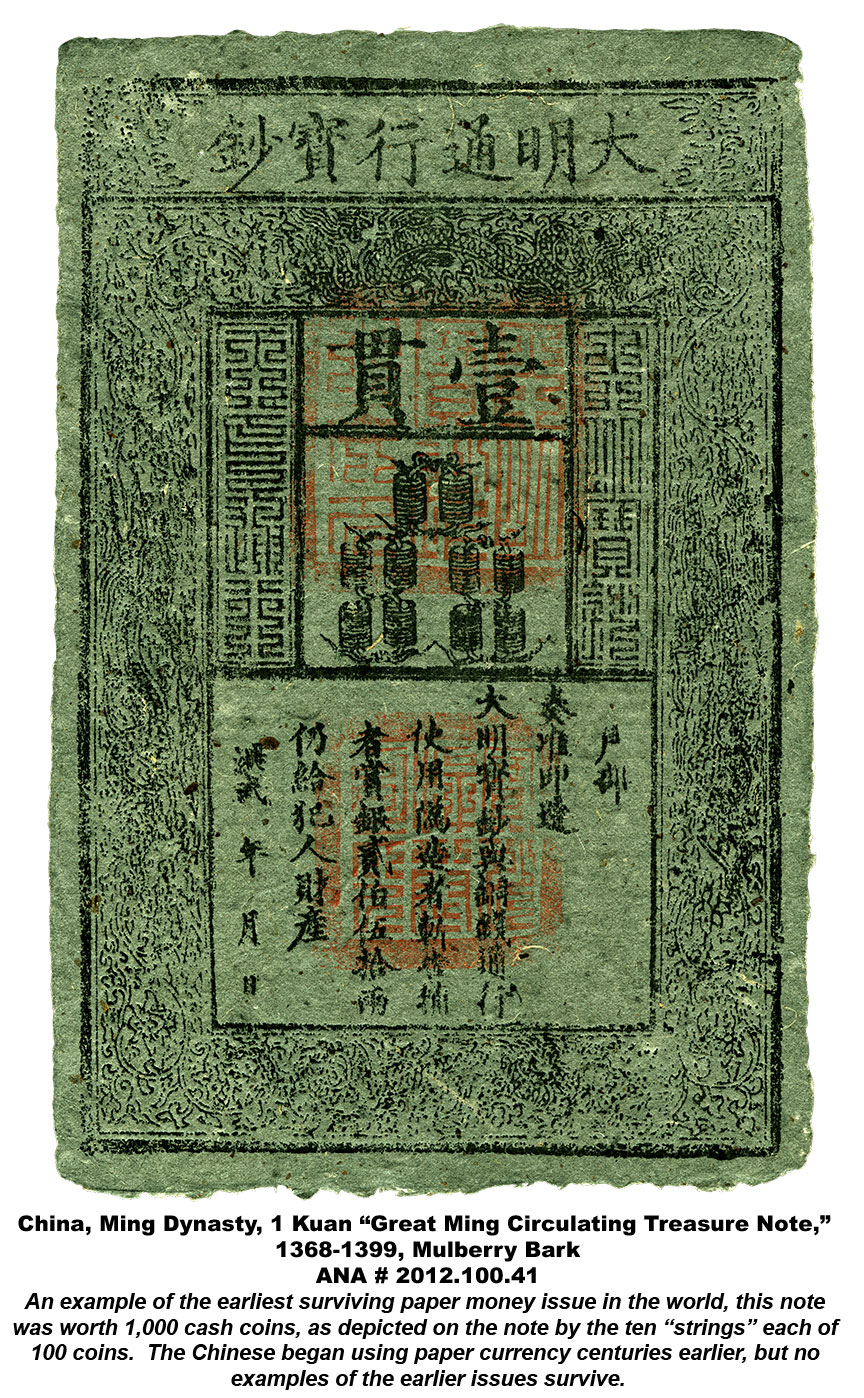 大明通行寶鈔
壹貫
大明寶鈔
天下通行
戶部
奏准印造
大明寶鈔與銅錢通行
使用偽造者斬告捕
者賞銀貳伯伍拾兩
仍給犯人財產
洪武 年 月 日
China, Ming Dynasty, 1 Kuan “Great Ming Circulating Treasure Note,”
1368-1399, Mulberry Bark
ANA # 2012.100.41
An example of the earliest surviving paper money issue in the world, this note
was worth 1,000 cash coins, as depicted on the note by the ten “strings” each of
100 coins.  The Chinese began using paper currency centuries earlier, but no
examples of the earlier issues survive.